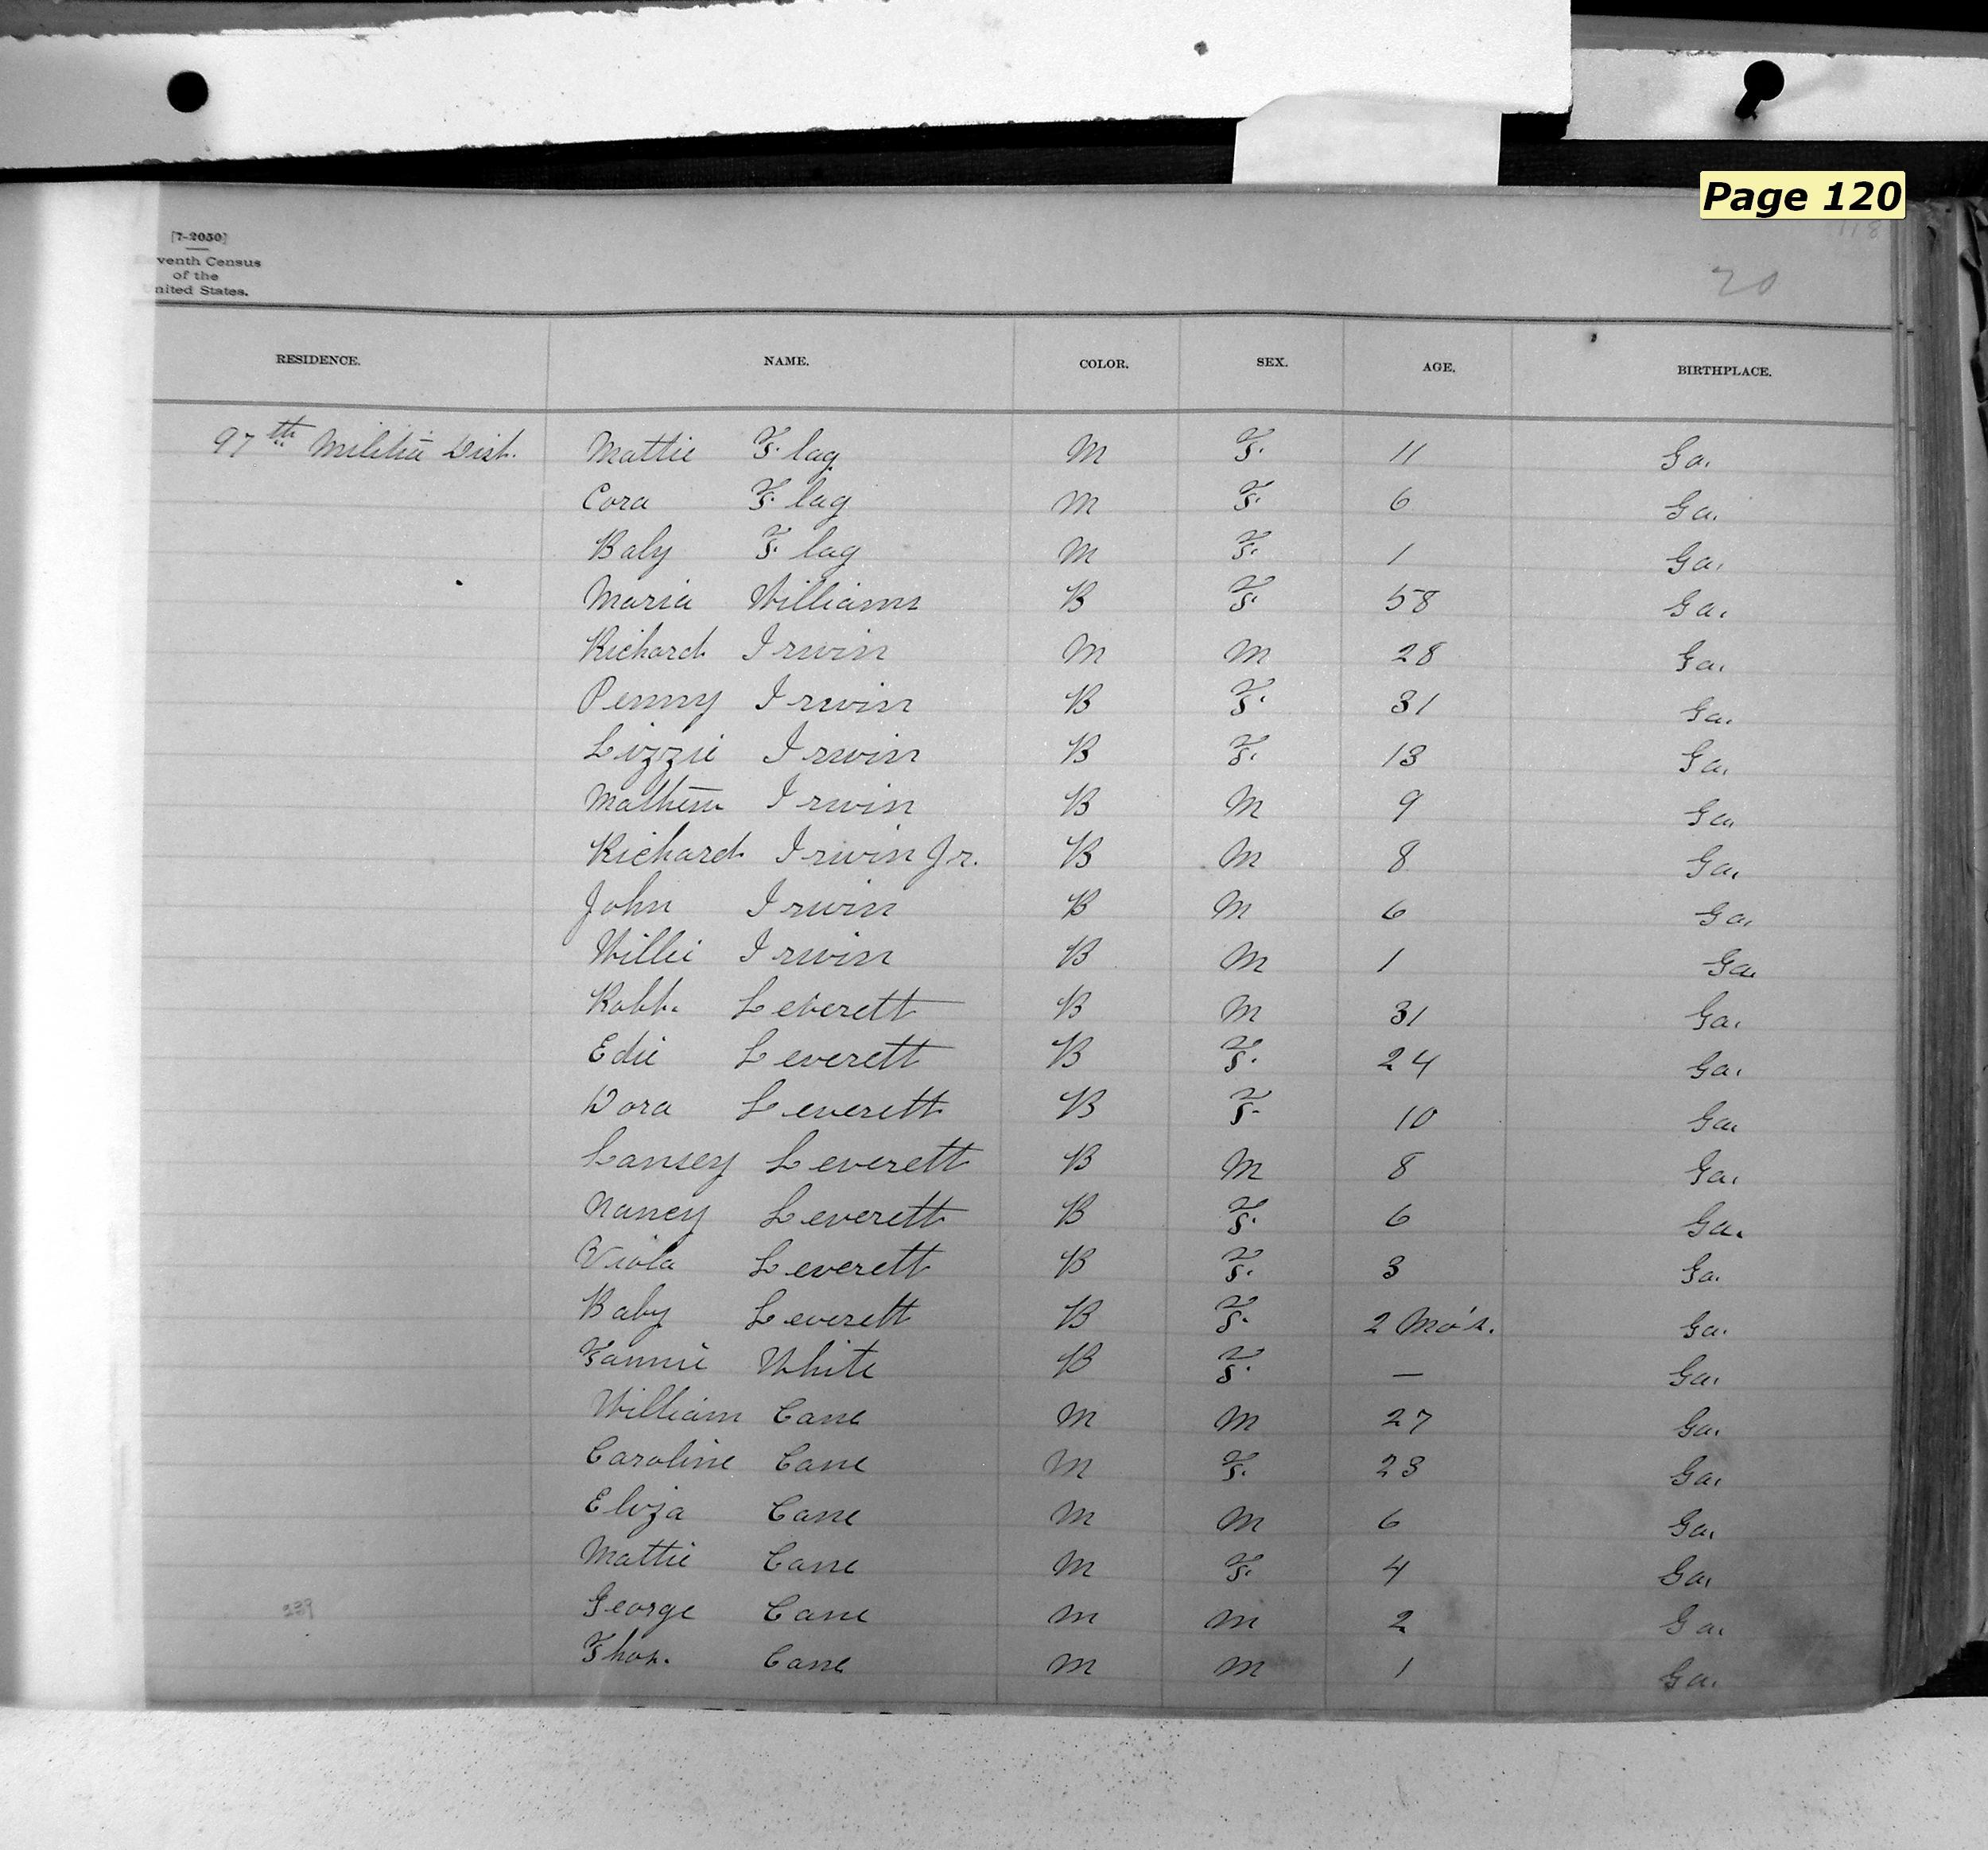 Page 120
118
[7-2050]
venth Census
of the
nited States.
20
RESIDENCE. NAME. COLOR. SEX. AGE. BIRTHPLACE.
97th Militia Dist. Mattie Flag M F. 11 Ga.
Cora Flag M F. 6 Ga.
Baby Flag M F. 1 Ga.
Maria Williams B F. 58 Ga.
Richard Irwin M M 28 Ga.
Penny Irwin B F. 31 Ga.
Lizzie Irwin B F. 13 Ga.
Mathew Irwin B M 9 Ga.
Richard Irwin Jr. B M 8 Ga.
John Irwin B M 6 Ga.
Willie Irwin B M 1 Ga.
Robt. Leverett B M 31 Ga.
Edie Leverett B F. 24 Ga.
Dora Leverett B F. 10 Ga.
Lansey Leverett B M 8 Ga.
Nancy Leverett B F. 6 Ga.
Viola Leverett B F. 3 Ga.
Baby Leverett B F. 2 Mo's. Ga.
Fannie White B F. — Ga.
William Cane M M 27 Ga.
Caroline Cane M F. 23 Ga.
Eliza Cane M M 6 Ga.
Mattie Cane M F. 4 Ga.
George Cane M M 2 Ga.
239
Thos. Cane M M 1 Ga.